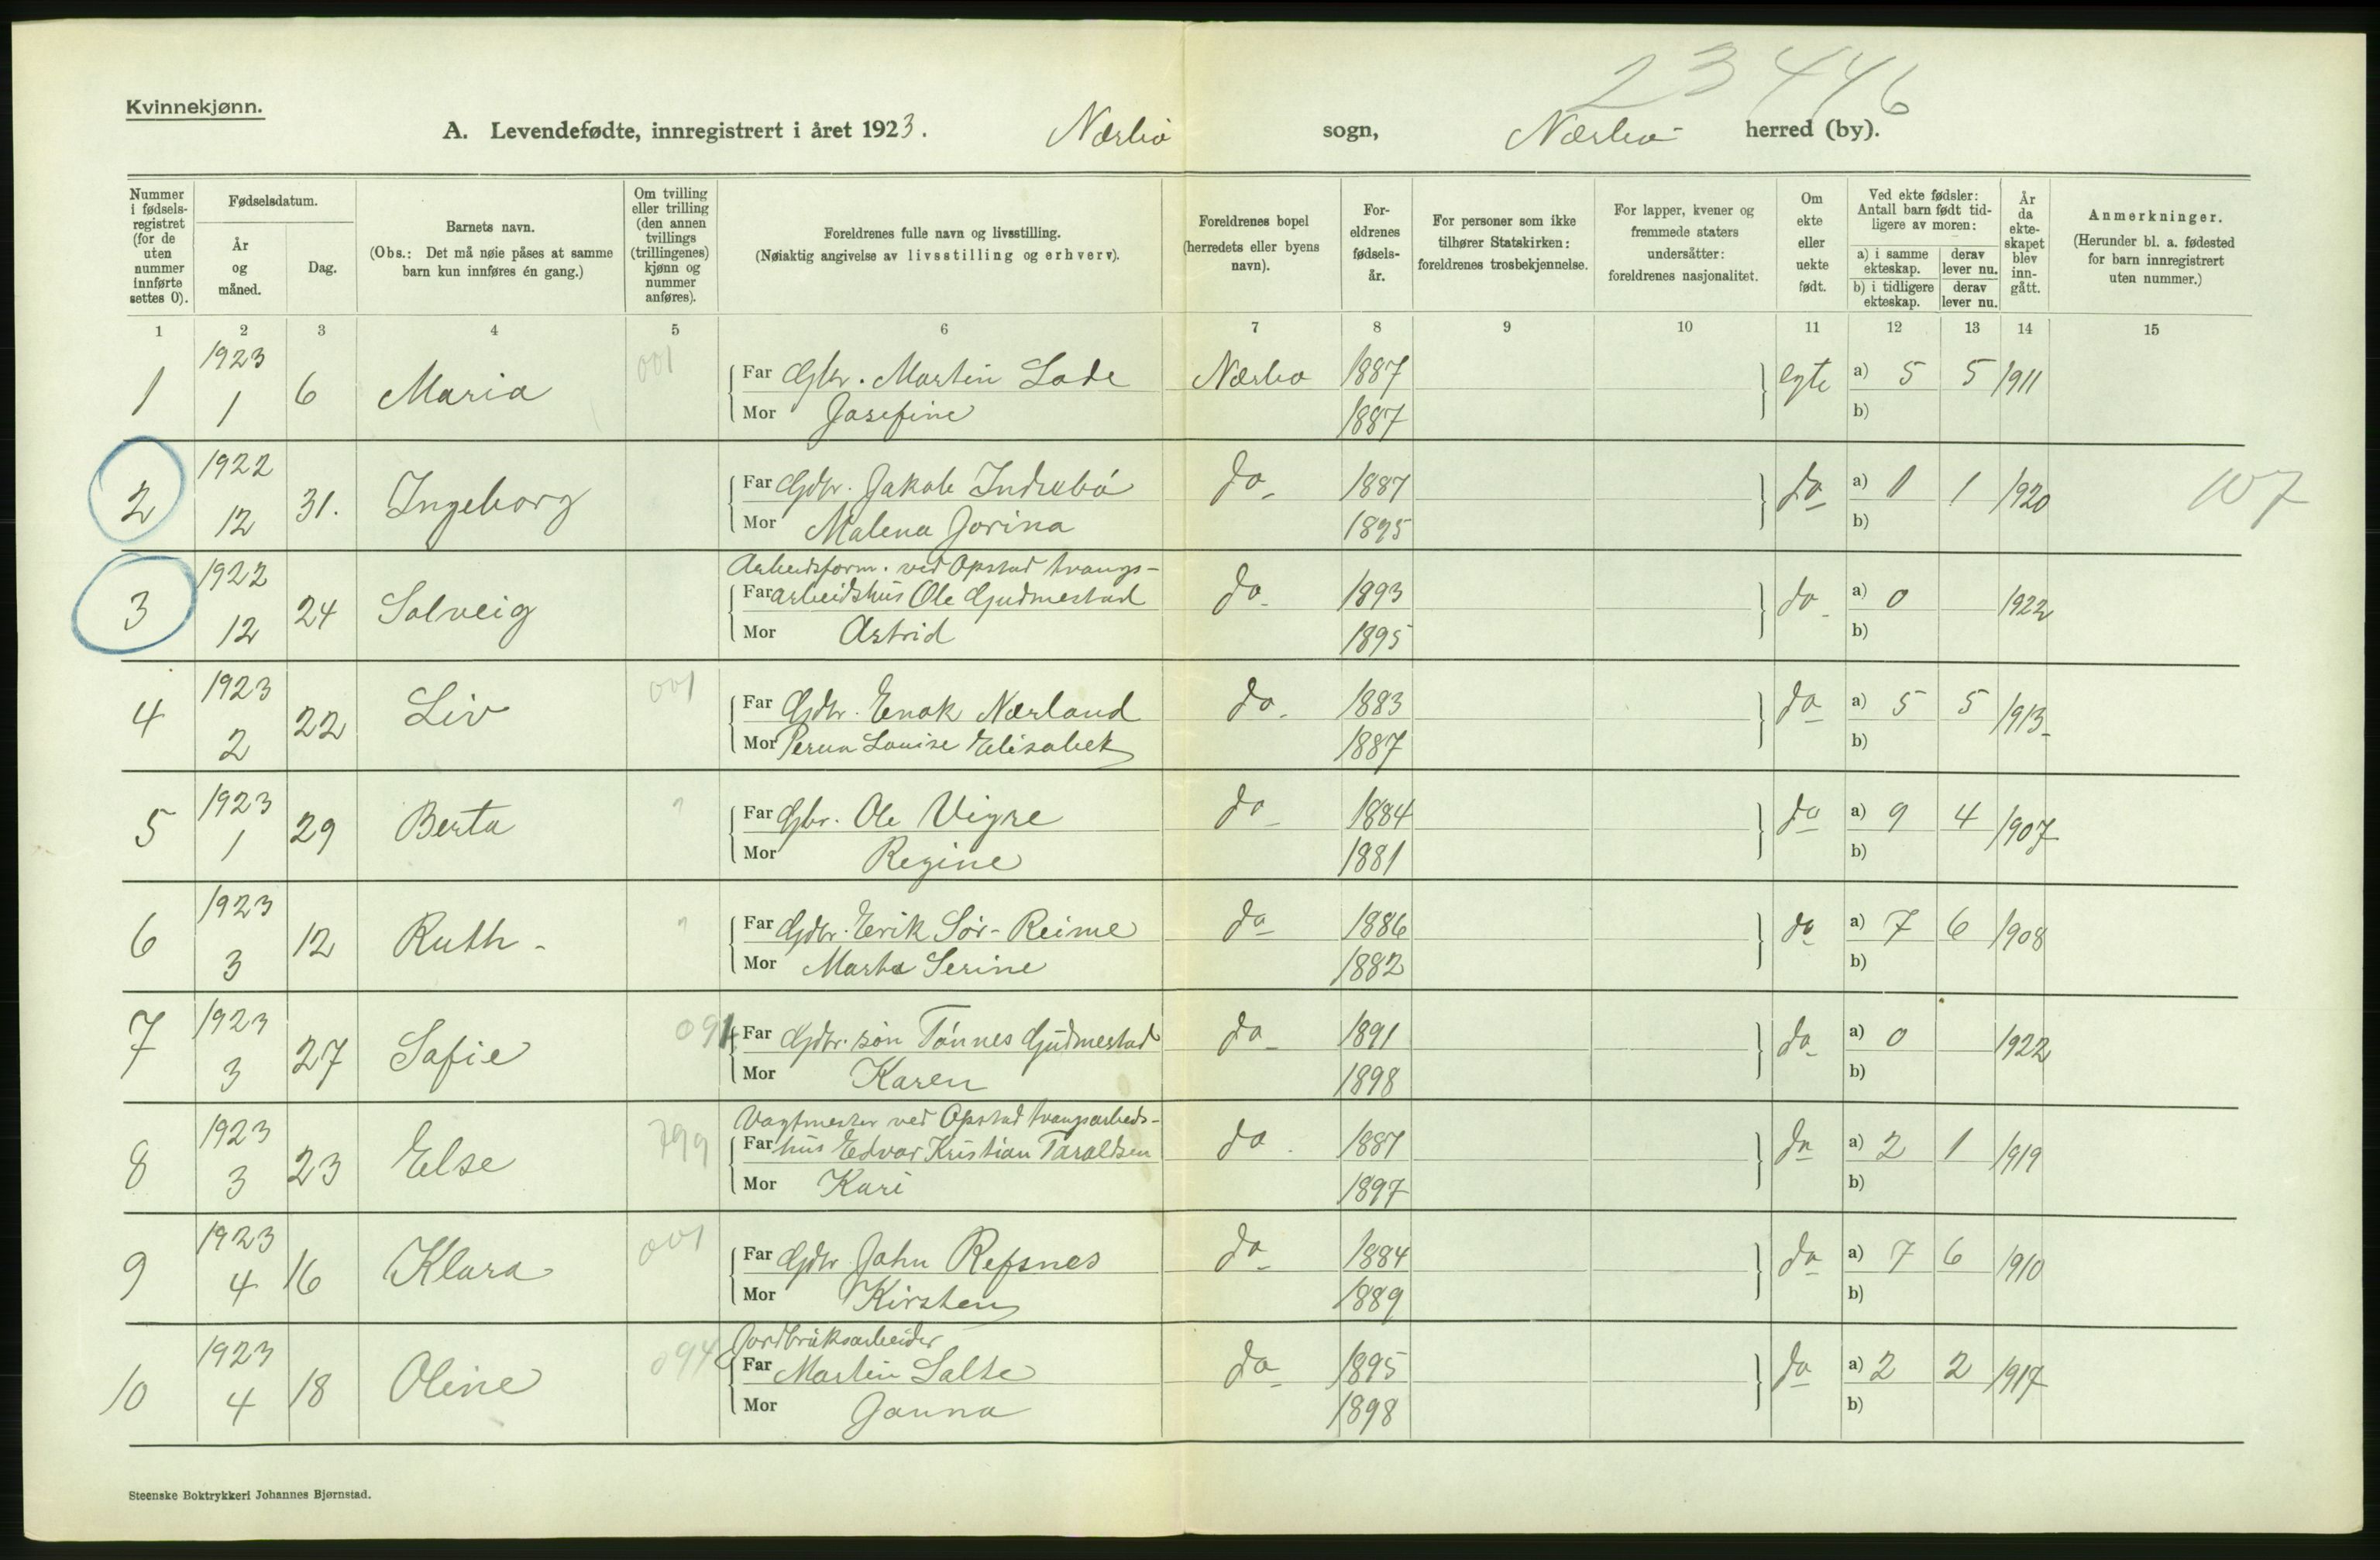 23446
Kvinnekjønn.
A. Levendefødte, innregistrert i året 1923. Nærbø sogn, Nærbø herred (by).
Nummer i fødsels-registret (for de uten nummer innførte settes 0).
Fødselsdatum.
År og måned.
Dag.
Barnets navn.
(Obs.: Det må nøie påses at samme barn kun innføres én gang.)
Om tvilling eller trilling (den annen tvillings (trillingenes) kjønn og nummer anføres).
Foreldrenes fulle navn og livsstilling.
(Nøiaktig angivelse av livsstilling og erhverv).
Foreldrenes bopel (herredets eller byens navn).
For-eldrenes fødsels-år.
For personer som ikke tilhører Statskirken: foreldrenes trosbekjennelse.
For lapper, kvener og fremmede staters undersåtter: foreldrenes nasjonalitet.
Om ekte eller uekte født.
Ved ekte fødsler: Antall barn født tid-ligere av moren:
a) i samme ekteskap. derav lever nu.
b) i tidligere ekteskap. derav lever nu.
År da ekte-skapet blev inn-gått.
Anmerkninger.
(Herunder bl. a. fødested for barn innregistrert uten nummer.)
1 2 3 4 5 6 7 8 9 10 11 12 13 14 15
1 1923 1 6 Maria 001 Far Gbr. Martin Lode Nærbø 1887 egte a) 5 5 1911
Mor Josefine 1887 b)
2 1922 12 31. Ingeborg Far Gdbr. Jakob Indrebø do 1887 do a) 1 1 1920 107
Mor Malena Jorina 1895 b)
3 1922 12 24 Solveig Arbeidsform. ved Opstad tvangs-
Far arbeidshus Ole Gudmestad do 1893 do a) 0 1922
Mor Astrid 1895 b)
4 1923 2 22 Liv 001 Far Gdbr. Enok Nærland do. 1883 do a) 5 5 1913
Mor Louise Elisabet 1887 b)
5 1923 1 29 Berta Far Gbr. Ole Vigre do 1884 do a) 9 4 1907
Mor Regine 1881 b)
6 1923 3 12 Ruth Far Gdbr. Erik Sør-Reime do 1886 do a) 7 6 1908
Mor Marta Serine 1882 b)
7 1923 3 27 Sofie 091 Far Gdbr. søn Tønnes Gudmestad do 1891 do a) 0 1922
Mor Karen 1898 b)
8 1923 3 23 Else 799 Vagtmester ved Opstad tvangsarbeds-
Far hus Edvar Kristian Taraldsen do 1887 do a) 2 1 1919
Mor Kari 1897 b)
9 1923 4 16 Klara 001 Far Gdbr John Refsnes do 1884 do a) 7 6 1910
Mor Kirsten 1889 b)
10 1923 4 18 Oline 094 Jordbruksarbeider
Far Martin Salte do 1895 do a) 2 2 1917
Mor Janna 1898 b)
Steenske Boktrykkeri Johannes Bjørnstad.